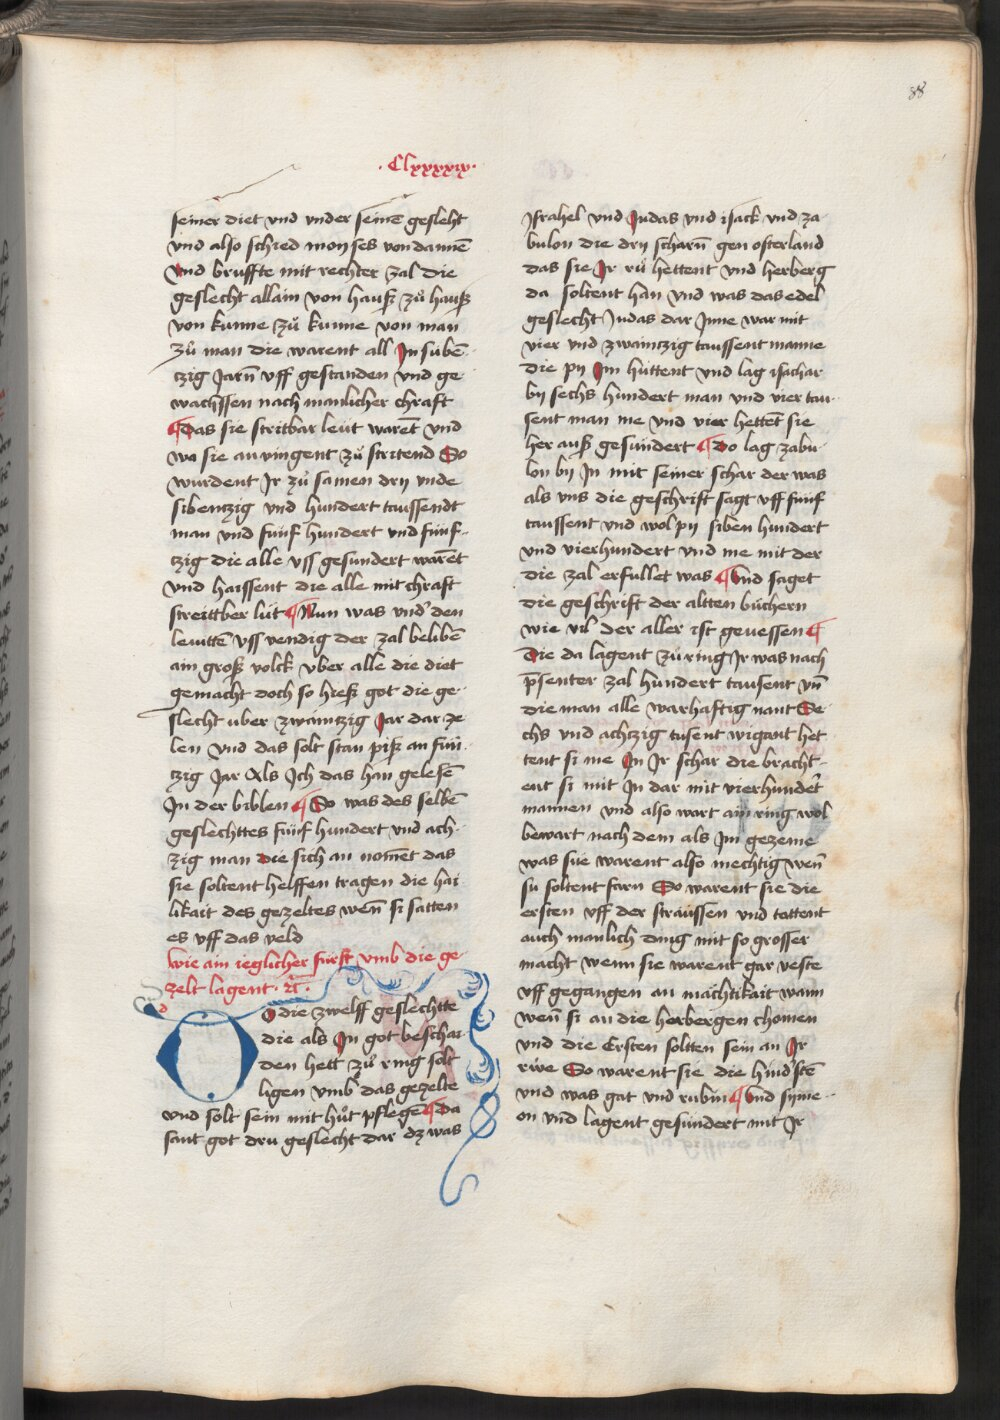 88
·Clxxxxix·
seiner diet vnd vnder seinē geslecht
vnd also schied moyses von dannē
Vnd bruffte mit rechter zal die
geslecht allain von hauß zů hauß
von kunne zů kunne von man
zů man die warent all In suben
czig Jarn̄ vff gestanden vnd ge
wachssen nach manlicher chraft
¶ Das sie stritbar leut warēt vnd
wa sie an vingent zů stritend So
wurdent Jr zů samen dry vnde
sibentzig vnd hundert taussendt
man vnd fünf hundert vnd fünf-
tzig die alle vss gesundert warēt
vnd haissent die alle mit chraft
streittber lüt ¶ Nun was vnd' den
leuittē vss wendig der zal belibē
ain groß volck vber alle die diet
gemacht doch so hieß got die ge-
slecht uber zwaintzig Jar dar ze
len vnd das solt stan piß an fün
czig Jar Als Jch das han gelesē
Jn der biblen ¶ So was des selbē
geslechttes fünf hundert vnd ach-
zig man die sich an nomēt das
sie soltent helffen tragen die hai
likait des gezeltes wen̄ si satten
es vff das veld
wie ain ieglicher fürst vmb die ge-
zelt lagent · ꝛc̄ ·
DO die zwelff geslechtte
die als Jn got beschai
den hett zů ring solt
ligen vmb das gezelte
vnd solt sein mit hůt pflegen ¶ Da
sant got dru geslecht dar dz was
Jsrahel vnd Judas vnd isack vnd za
bulon die dry scharn̄ gen osterland
das sie Jr rů hettent vnd herberg
da soltent han vnd was das edel
geslecht Judas dar Jnne war mit
vier vnd zwaintzig taussent manne
die py Jm hüttent vnd lag isachar
by sechs hundert man vnd vier tau-
sent man me vnd vier hettēt sie
her auß gesundert ¶ Do lag zabu-
lon by Jn mit seiner schar der was
als vns die geschrift sagt vff funf
taussent vnd wol py siben hundert
vnd vierhundert vnd me mit der
die zal erfullet was ¶ Vnd saget
die geschrift der altten büchern
wie vil der aller ist gewessen ¶
Die da lagent zů ring Jr was nach
p̄senter zal hundert tausent vn̄
die man alle warhaftig nant Se
chs vnd achtzig tusent wigant het
tent si me Jn Jr schar die bracht-
ent si mit Jn dar mit vierhundēt
mannen vnd also wart ain ring wol
bewart nach dem als Jm gezeme
was sue warent also mechtig wen̄
su soltent farn So warent sie die
ersten vff der straussen vnd tattent
auch manlich ding mit so grosser
macht wenn sie warent gar veste
vff gegangen an mächtikait wann
wen̄ si an die herbergen chomen
vnd die Ersten soltten sein an Jr
rüwe So warent sie die hind'stē
vnd was gat vnd rubin ¶ Vnd syme-
on vnd lagent gesundert mit Jr